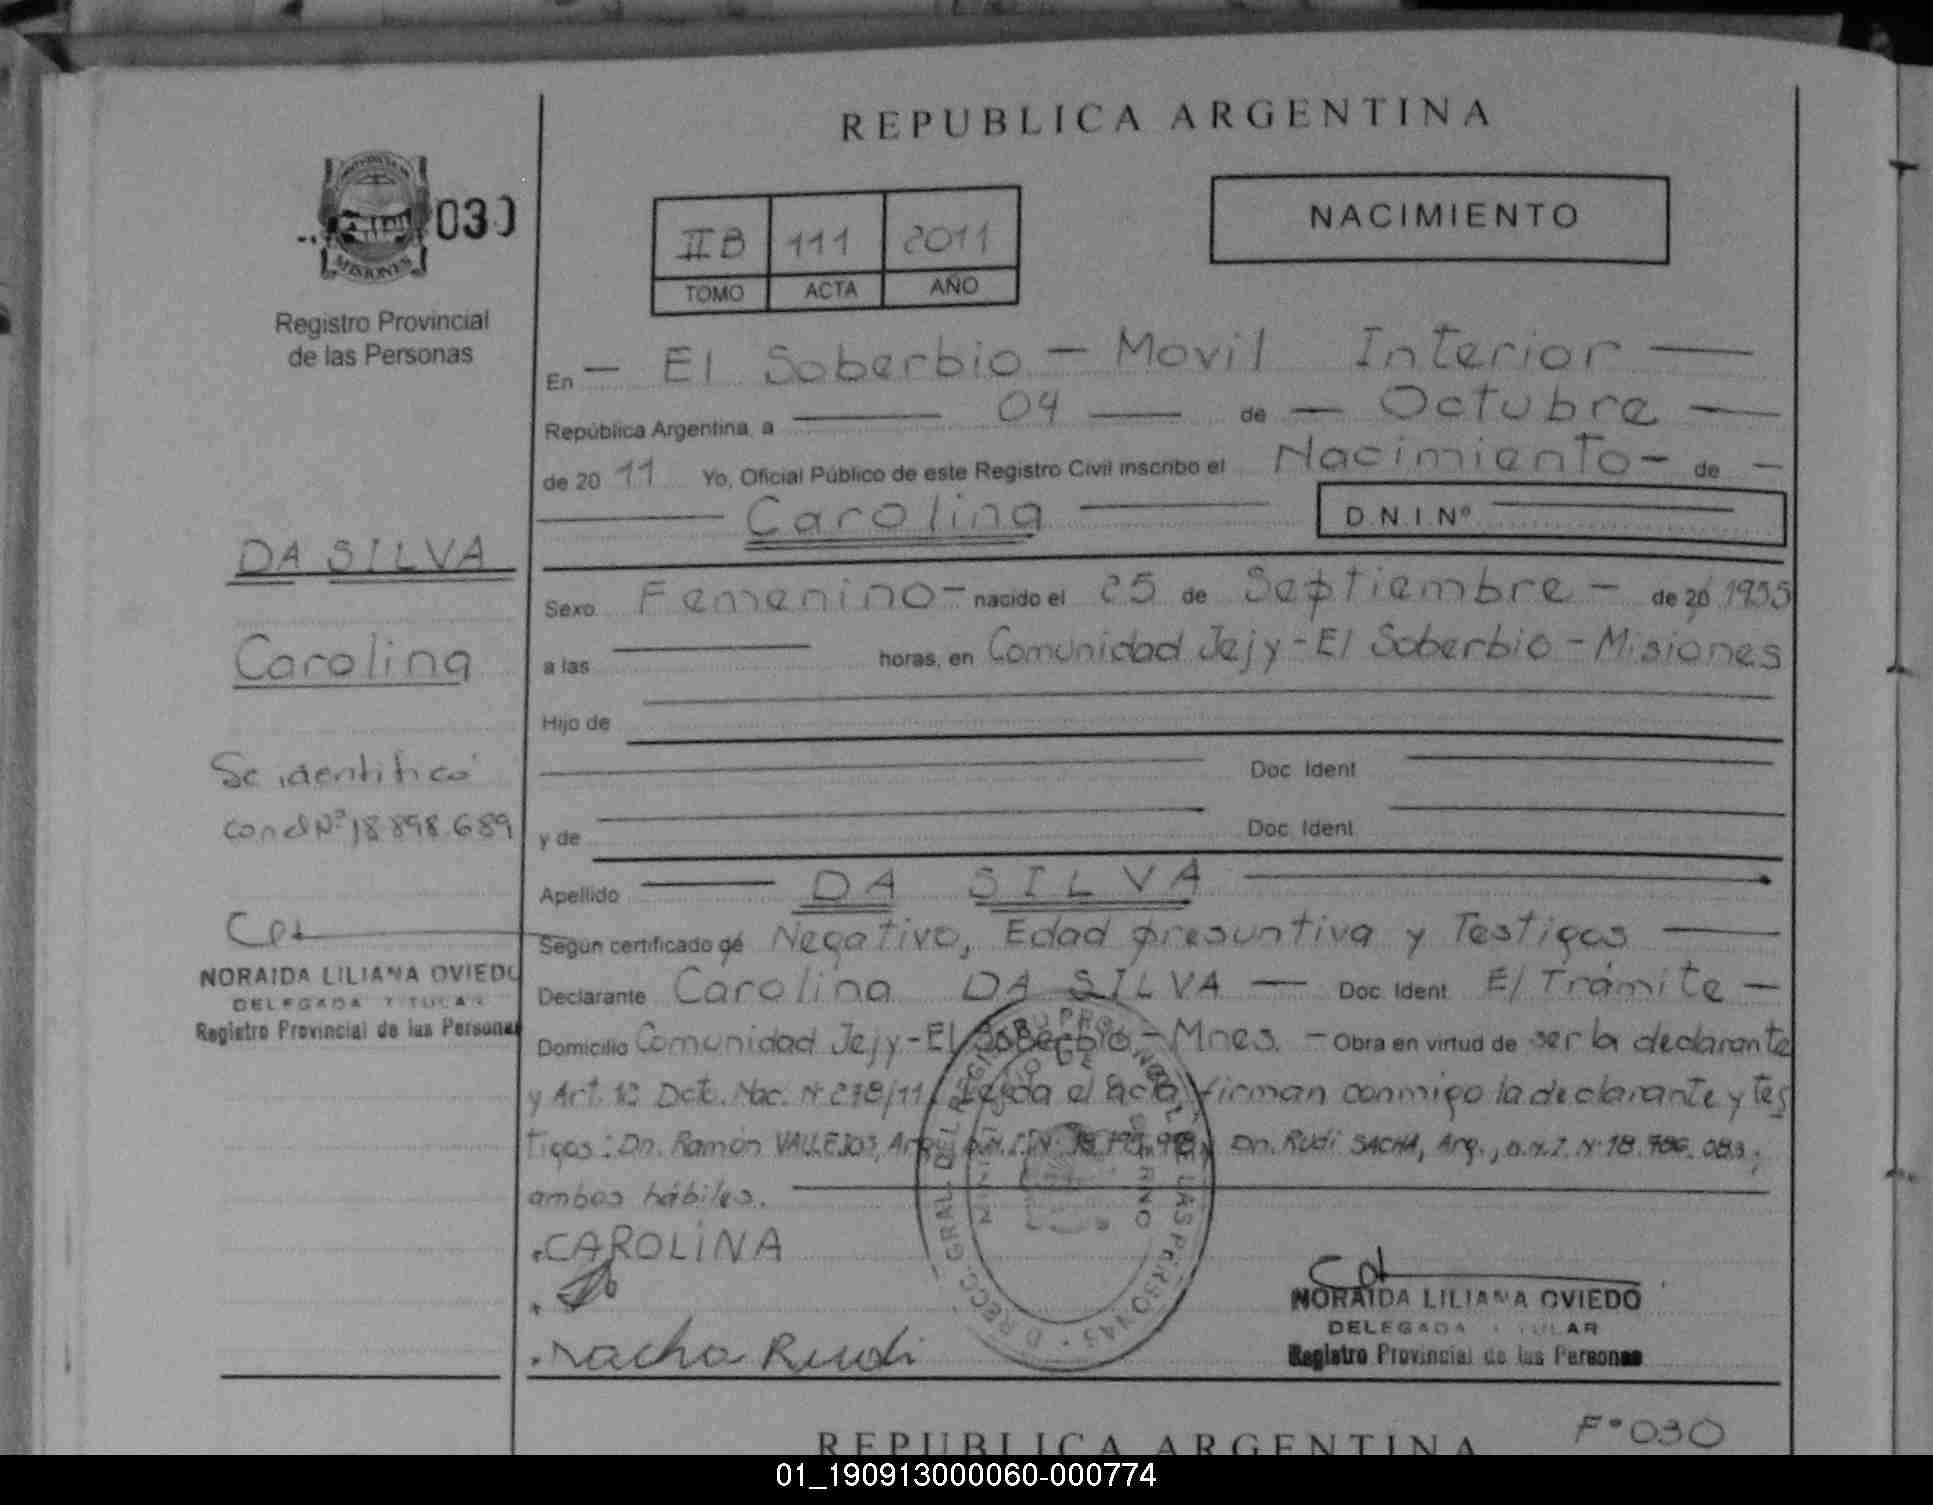 REPUBLICA ARGENTINA
NACIMIENTO
030
MISIONES
Registro Provincial
de las Personas
IIB 111 2011
TOMO ACTA AÑO
En - El Soberbio - Movil Interior
República Argentina, a 04 de - Octubre
de 20 11 Yo, Oficial Público de este Registro Civil inscribo el Nacimiento - de -
Carolina D.N.I. Nº
DA SILVA
Carolina
Se identificó
con el Nº 18.898.689
NORAIDA LILIANA OVIEDO
DELEGADA TITULAR
Registro Provincial de las Personas
Sexo Femenino - nacido el 25 de Septiembre - de 20 1955
a las horas, en Comunidad Jejy - El Soberbio - Misiones
Hijo de
Doc. Ident.
y de Doc. Ident.
Apellido DA SILVA
Según certificado de Negativo, Edad presuntiva y Testigos
Declarante Carolina DA SILVA - Doc. Ident. E/ Trámite -
Domicilio Comunidad Jejy - El Soberbio - Mnes. - Obra en virtud de ser la declarante
y Art. Dcto. Nac. Nº 278/11. Leída el acta, firman conmigo la declarante y tes
tigos: Dn. Ramón VALLEJOS, Arg., D.N.I. Nº y Dn. Rudi SACHA, Arg., D.N.I. Nº 18.786.083;
ambos hábiles.
CAROLINA
Rudi
NORAIDA LILIANA OVIEDO
DELEGADA TITULAR
Registro Provincial de las Personas
REPUBLICA ARGENTINA Fº 030
01_190913000060-000774